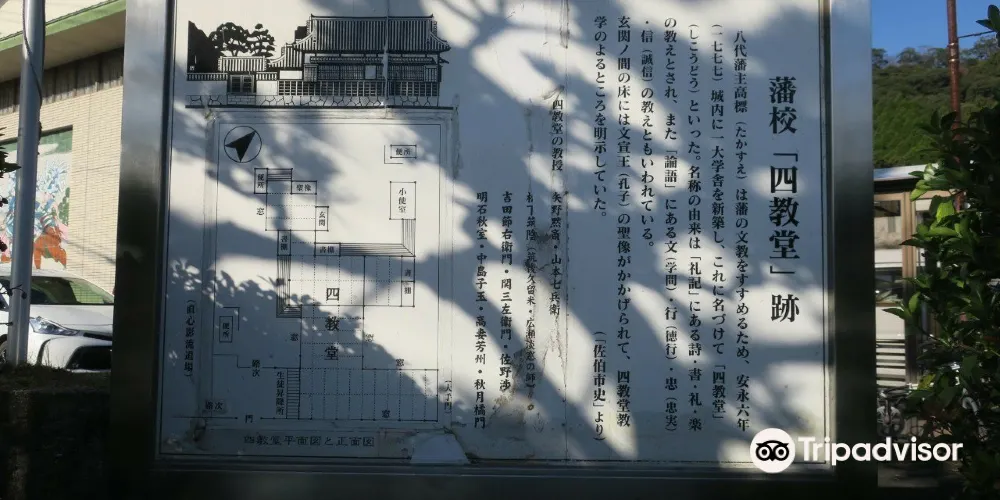 藩校「四教堂」跡
八代藩主高標（たかすえ）は藩の文教をすすめるため、安永六年
（一七七七）城内に一大学舎を新築し、これに名づけて「四教堂」
（しこうどう）といった。名称の由来は「礼記」にある詩・書・礼・楽
の教えとされ、また「論語」にある文（学問）・行（徳行）・忠（忠実）
・信（誠信）の教えともいわれている。
玄関ノ間の床には文宣王（孔子）の聖像がかかげられて、四教堂教
学のよるところを明示していた。
（「佐伯市史」より）
四教堂の教授
矢野黙斎・山本七兵衛
古田節右衛門・関三左衛門・佐野渉
明石秋室・中島子玉・高妻芳州・秋月橘門
便所
小使室
便所
聖像
玄関
窓
書棚
書棚
書棚
四教堂
窓
窓
窓
窓
便所
生徒昇降所
門
（直心影流道場）
四教堂平面図と正面図
Tripadvisor